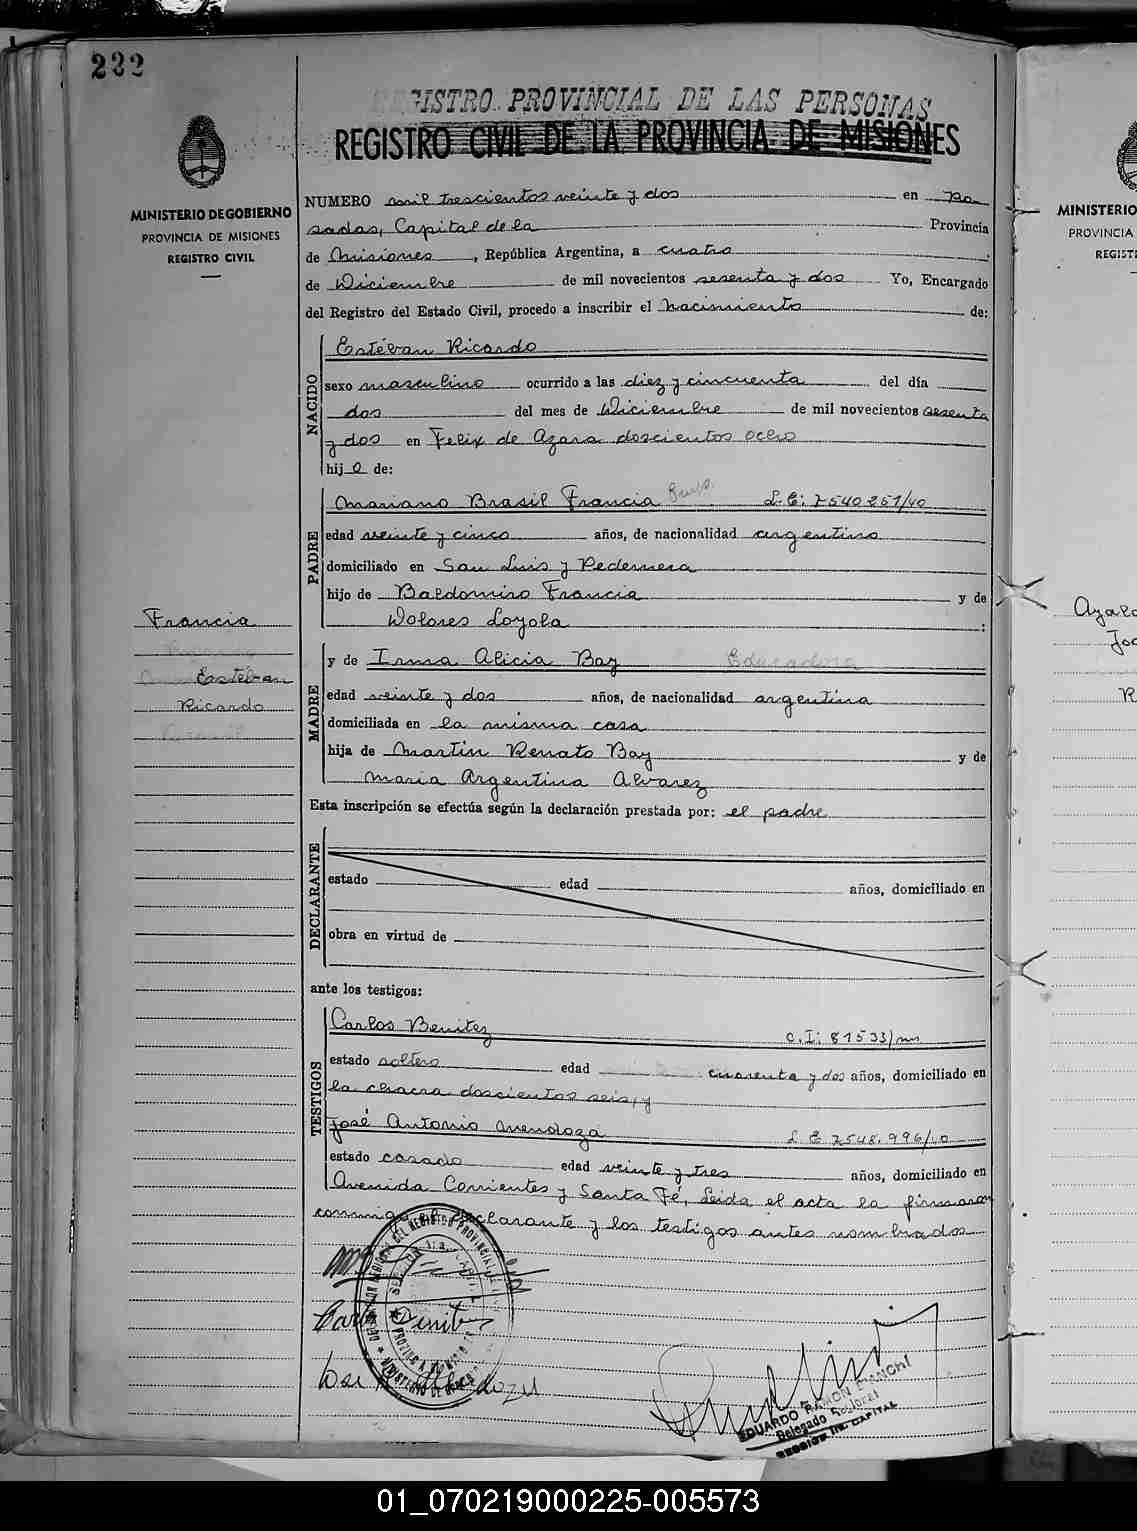 232
REGISTRO PROVINCIAL DE LAS PERSONAS
REGISTRO CIVIL DE LA PROVINCIA DE MISIONES
MINISTERIO DE GOBIERNO
PROVINCIA DE MISIONES
REGISTRO CIVIL
NUMERO mil trescientos veinte y dos en Po
sadas, Capital de la Provincia
de Misiones, República Argentina, a cuatro
de Diciembre de mil novecientos sesenta y dos Yo, Encargado
del Registro del Estado Civil, procedo a inscribir el nacimiento de:
NACIDO
Estéban Ricardo
sexo masculino ocurrido a las diez y cincuenta del día
dos del mes de Diciembre de mil novecientos sesenta
y dos en Felix de Azara doscientos ocho
hijo de:
PADRE
Mariano Brasil Francia L.E: 7540251/40
edad veinte y cinco años, de nacionalidad argentino
domiciliado en San Luis y Pedernera
hijo de Baldomiro Francia y de
Dolores Loyola :
Francia
Estéban
Ricardo
MADRE
y de Irma Alicia Bay Educadora
edad veinte y dos años, de nacionalidad argentina
domiciliada en la misma casa
hija de Martin Renato Bay y de
Maria Argentina Alvarez
Esta inscripción se efectúa según la declaración prestada por: el padre
DECLARANTE
estado edad años, domiciliado en
obra en virtud de
ante los testigos:
TESTIGOS
Carlos Benitez C.I: 81533/mns
estado soltero edad cuarenta y dos años, domiciliado en
la chacra doscientos seis, y
José Antonio Mendoza L.E 7548.996/
estado casado edad veinte y tres años, domiciliado en
Avenida Corrientes y Santa Fé, Leida el acta la firmaron
conmigo el declarante y los testigos antes nombrados
Carlos Benitez
Jose A Mendoza
EDUARDO RAMON BIANCHI
Delegado Regional
SECCION 1ra. CAPITAL
MINISTERIO
PROVINCIA
REGIST
Ayala
Jo
R
01_070219000225-005573